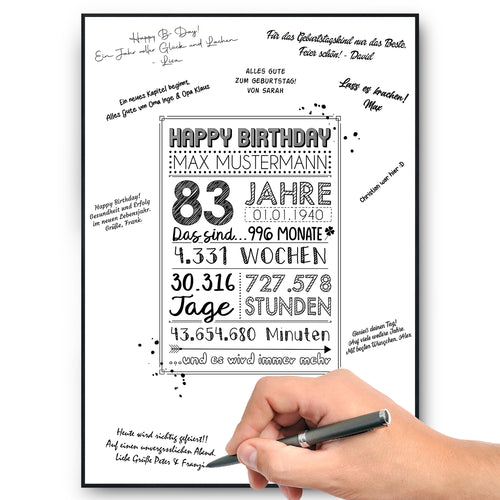 Happy B-Day!
Ein Jahr voller Glück und Lachen
- Lisa
Für das Geburtstagskind nur das Beste.
Feier schön! - David
ALLES GUTE
ZUM GEBURTSTAG!
VON SARAH
Lass es krachen!
Max
Ein neues Kapitel beginnt,
Alles Gute von Oma Inge & Opa Klaus
Christian war hier :-D
Happy Birthday!
Gesundheit und Erfolg
im neuen Lebensjahr.
Grüße, Frank.
HAPPY BIRTHDAY
MAX MUSTERMANN
83 JAHRE
01.01.1940
Das sind... 996 MONATE
4.331 WOCHEN
30.316 Tage
727.578 STUNDEN
43.654.680 Minuten
...und es wird immer mehr
Genieß deinen Tag!
Auf viele weitere Jahre.
Mit besten Wünschen, Alex
Heute wird richtig gefeiert!!
Auf einen unvergesslichen Abend.
Liebe Grüße Peter & Franzi